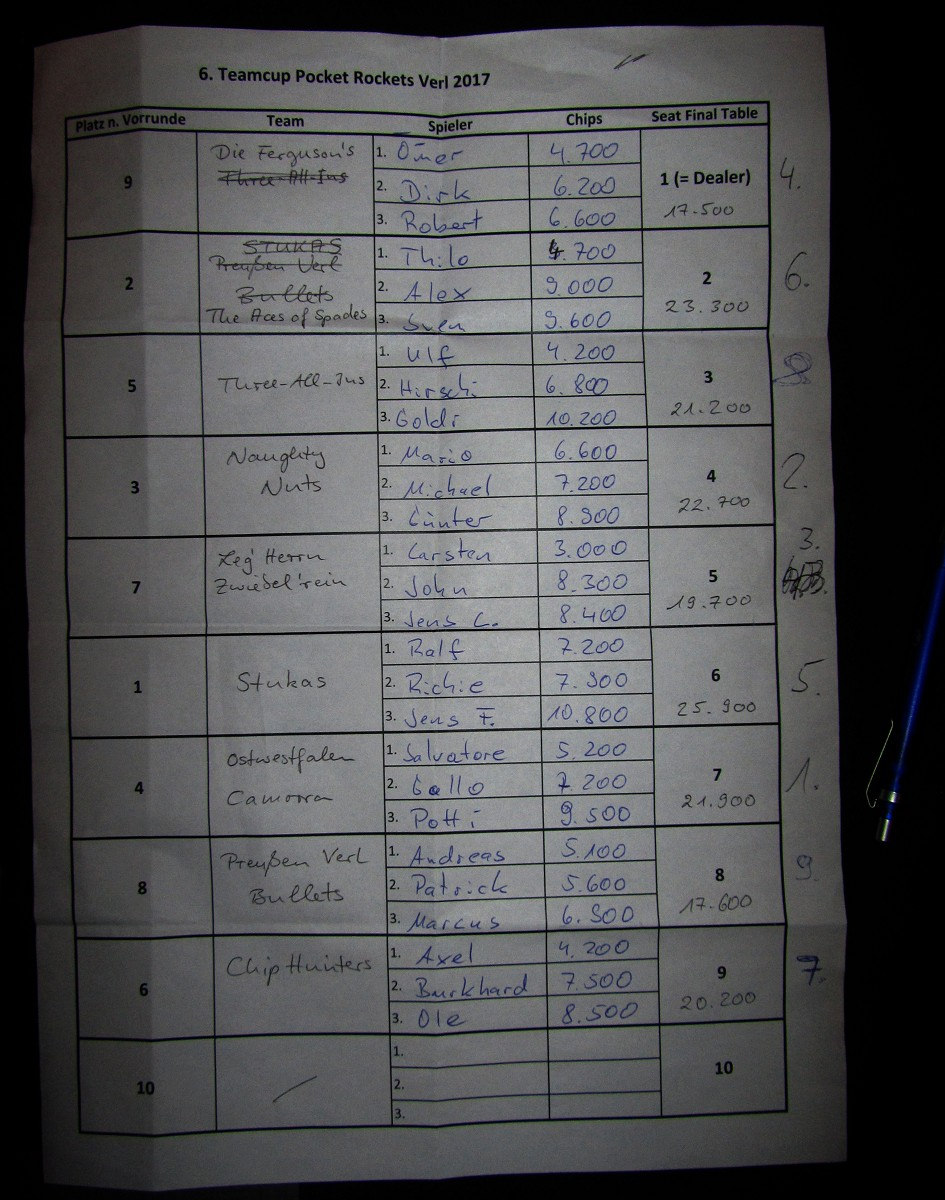 6. Teamcup Pocket Rockets Verl 2017
Platz n. Vorrunde Team Spieler Chips Seat Final Table
9 Die Ferguson's 1. Ömer 4.700 1 (= Dealer) 4.
Three-All-Ins 2. Dirk 6.200
3. Robert 6.600 17.500
2 STUKAS 1. Thilo 4.700 2 6.
Preußen Verl
Bullets 2. Alex 9.000
The Aces of Spades 3. Sven 9.600 23.300
5 Three-All-Ins 1. Ulf 4.200 3 8.
2. Hirschi 6.800
3. Goldi 10.200 21.200
3 Naughty 1. Mario 6.600 4 2.
Nuts 2. Michael 7.200
3. Günter 8.900 22.700
7 Leg' Herrn 1. Carsten 3.000 5 3.
Zwiebel 'rein 2. John 8.300
3. Jens C. 8.400 19.700
1 Stukas 1. Ralf 7.200 6 5.
2. Richie 7.900
3. Jens F. 10.800 25.900
4 Ostwestfalen 1. Salvatore 5.200 7 1.
Camorra 2. Gallo 7.200
3. Potti 9.500 21.900
8 Preußen Verl 1. Andreas 5.100 8 9.
Bullets 2. Patrick 5.600
3. Marcus 6.900 17.600
6 Chip Hunters 1. Axel 4.200 9 7.
2. Burkhard 7.500
3. Ole 8.500 20.200
10 / 1. 10
2.
3.